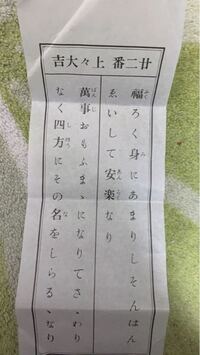 廿二番 上々大吉
福ろく身にあまりしそんはん
ゑいして安楽なり
萬事おもふまゝになりてさゝわり
なく四方にその名をしらるゝなり